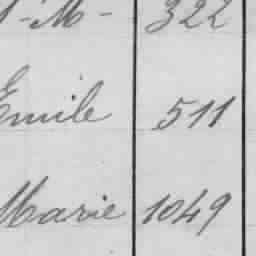 -M- 322
Emile 511
Marie 1049